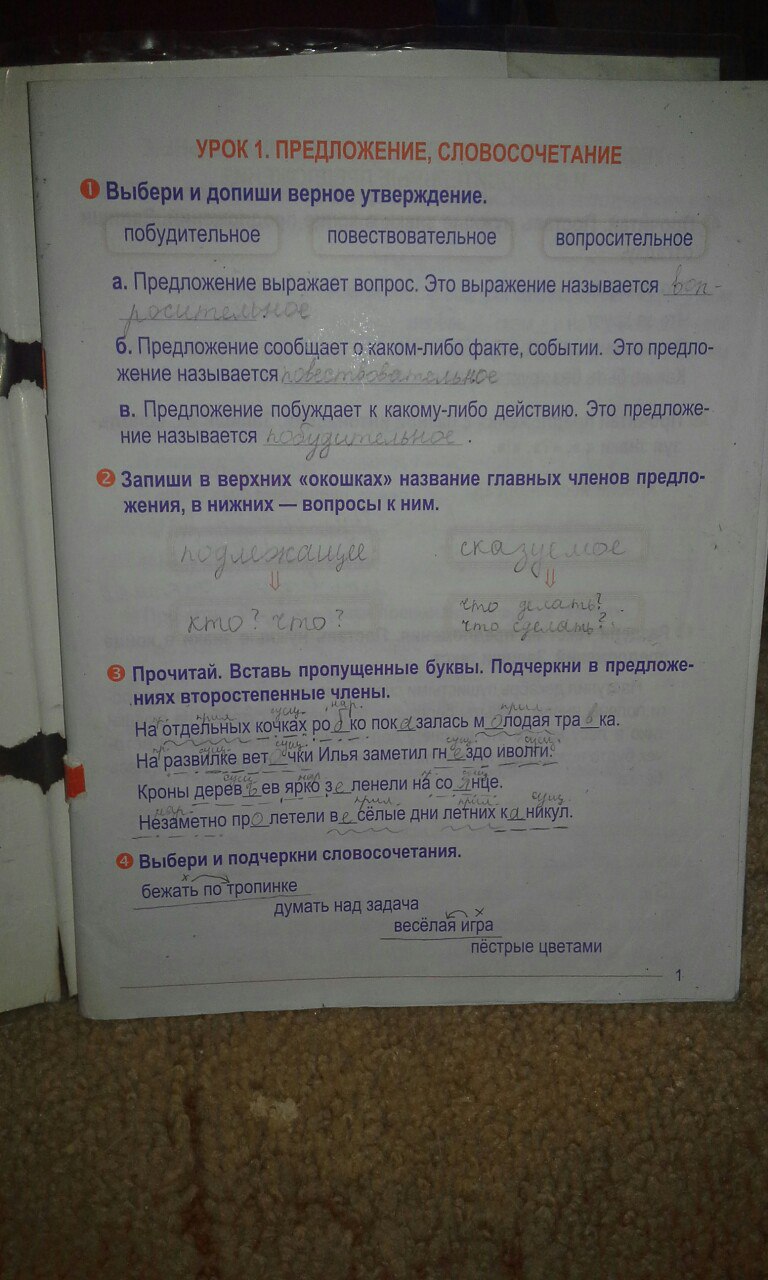 УРОК 1. ПРЕДЛОЖЕНИЕ, СЛОВОСОЧЕТАНИЕ
1 Выбери и допиши верное утверждение.
побудительное повествовательное вопросительное
а. Предложение выражает вопрос. Это выражение называется воп-
росительное
б. Предложение сообщает о каком-либо факте, событии. Это предло-
жение называется повествовательное
в. Предложение побуждает к какому-либо действию. Это предложе-
ние называется побудительное.
2 Запиши в верхних «окошках» название главных членов предло-
жения, в нижних — вопросы к ним.
подлежащее сказуемое
⇓ ⇓
кто? что? что делать?
что сделать?
3 Прочитай. Вставь пропущенные буквы. Подчеркни в предложе-
ниях второстепенные члены.
прил. сущ. нар. прил.
На отдельных кочках робко показалась молодая травка.
сущ. сущ. сущ.
На развилке веточки Илья заметил гнездо иволги.
сущ. нар. сущ.
Кроны деревьев ярко зеленели на солнце.
нар. прил. прил. сущ.
Незаметно пролетели весёлые дни летних каникул.
4 Выбери и подчеркни словосочетания.
х
бежать по тропинке
думать над задача
х
весёлая игра
пёстрые цветами
1